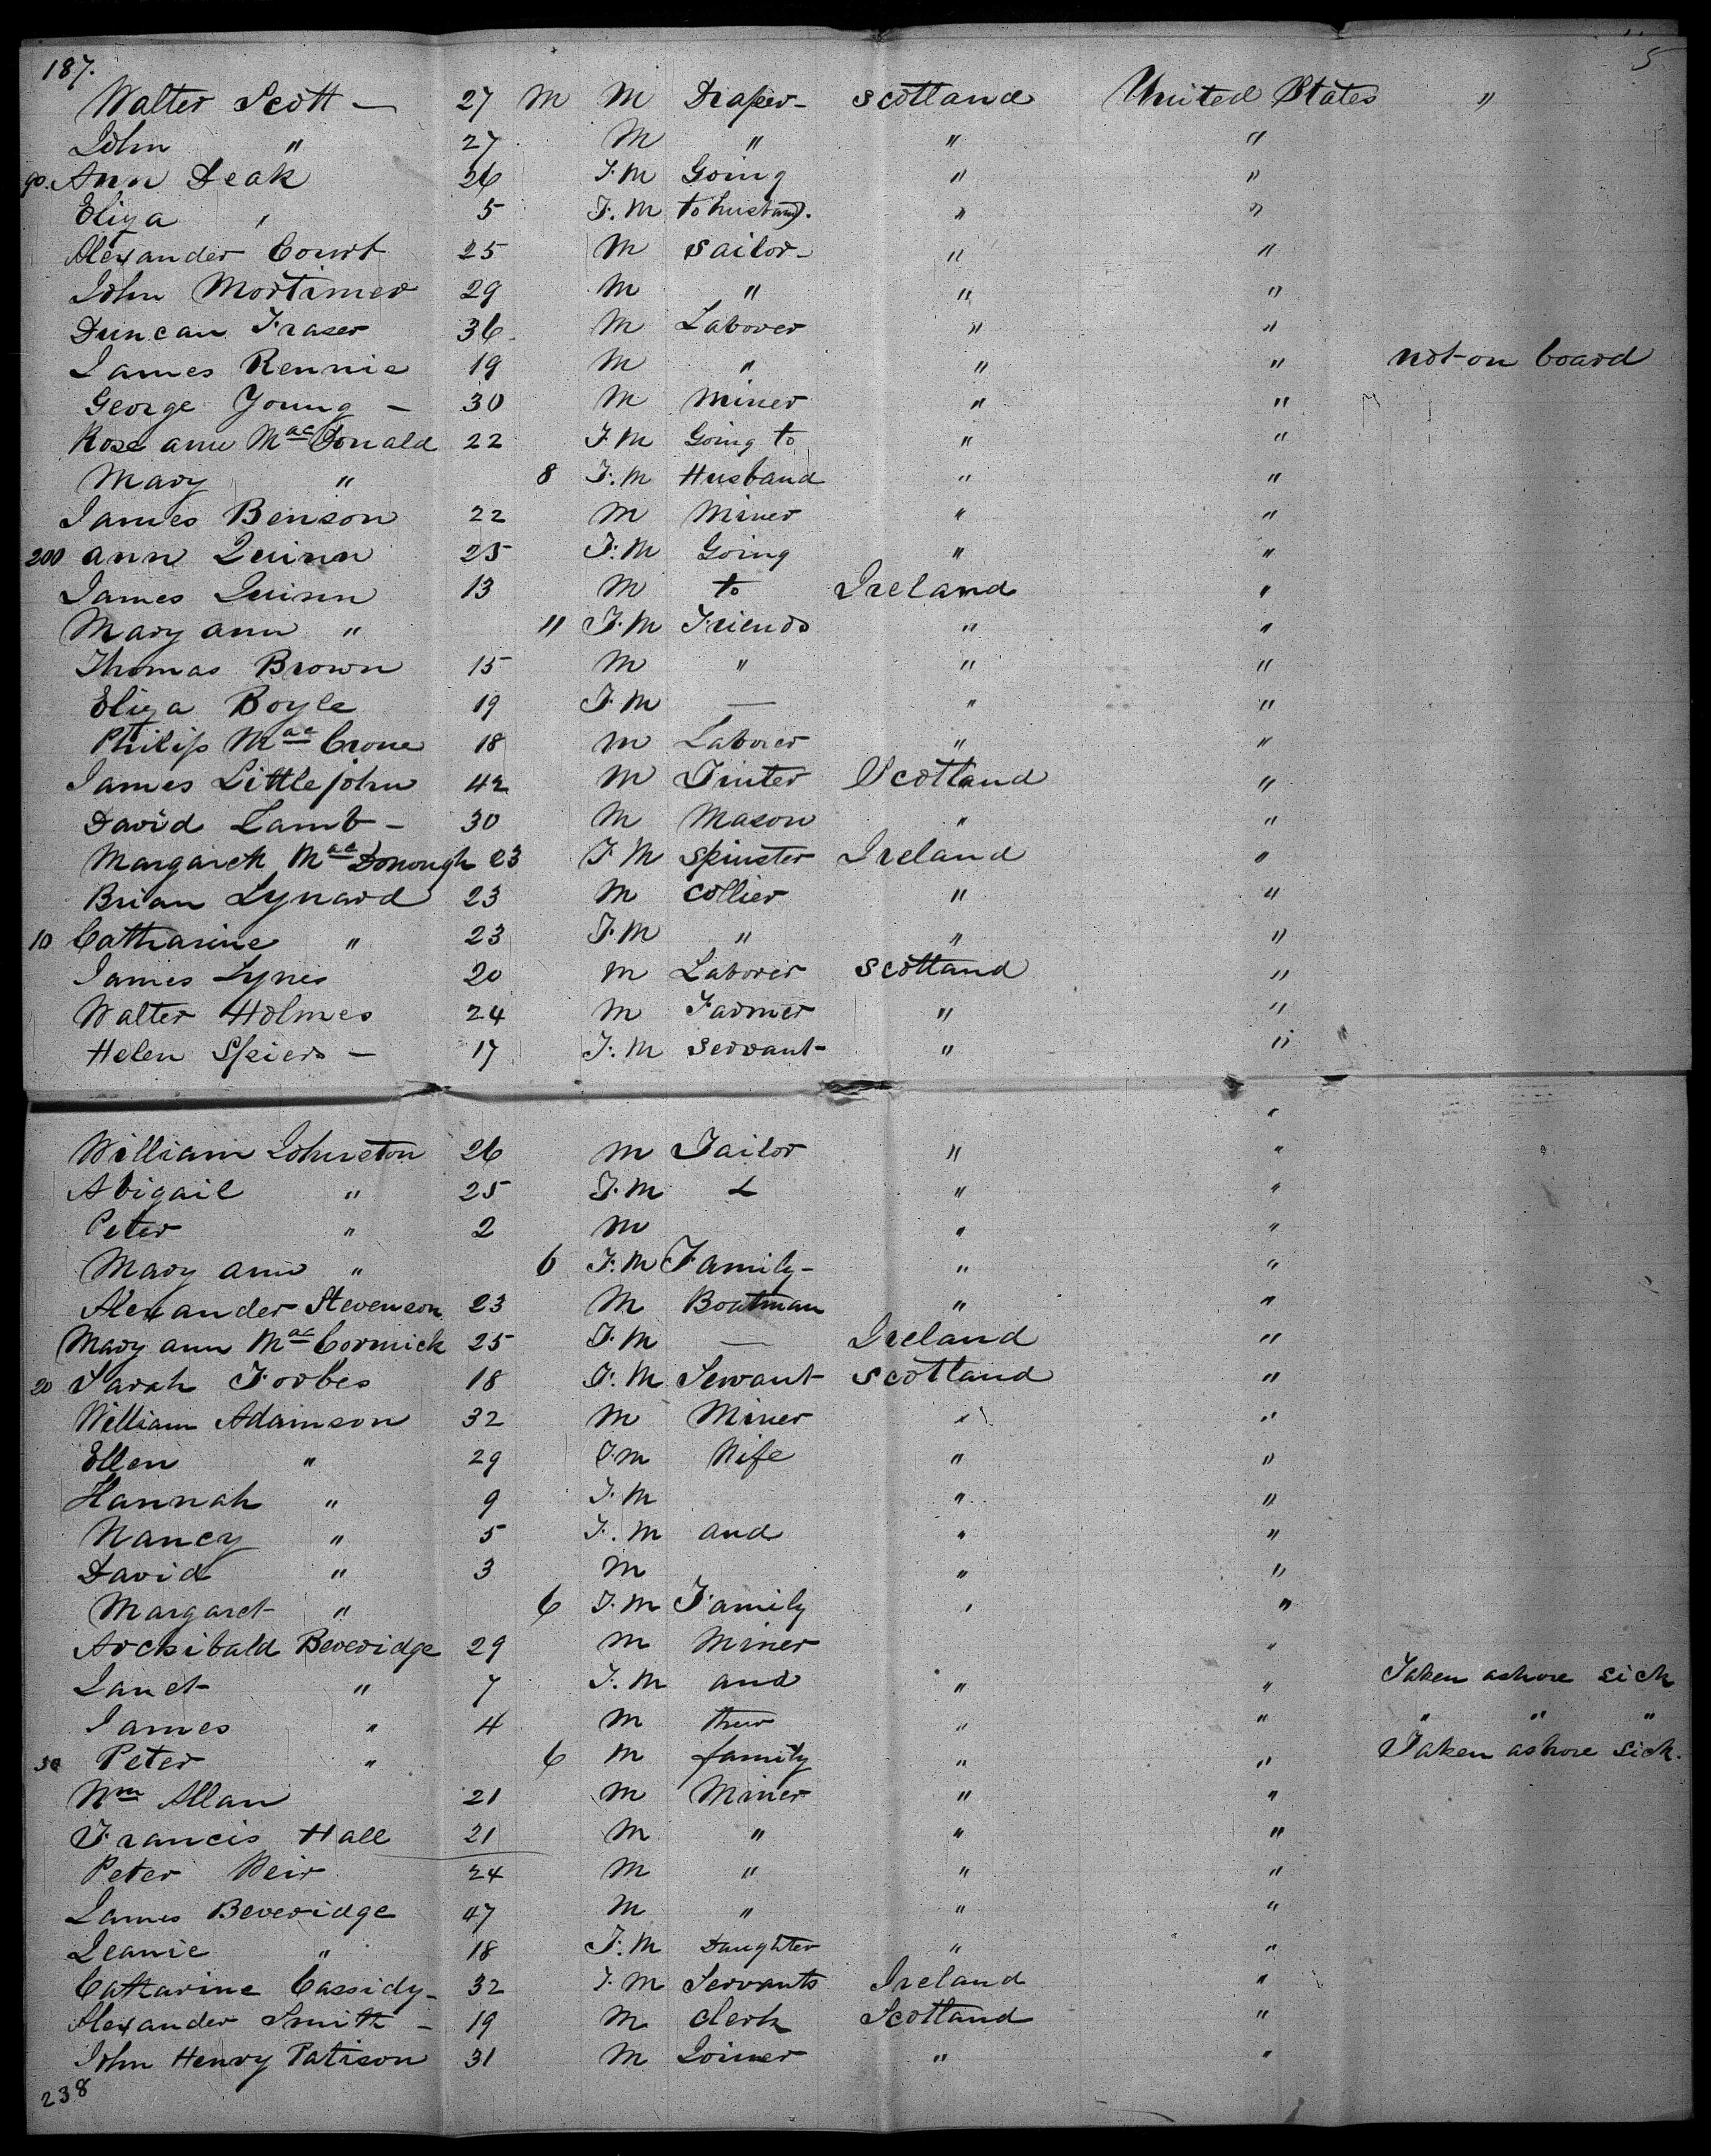 187. 5
Walter Scott — 27 M M Draper - Scotland United States "
John " 27 M " " "
90. Ann Deak 26 F.M Going " "
Eliza " 5 F.M to husband. " "
Alexander Court 25 M Sailor - " "
John Mortimer 29 M " " "
Duncan Fraser 36 M Laborer " "
James Rennie 19 M " " " not on board
George Young — 30 M Miner " "
Rose ann Mac Donald 22 F.M Going to " "
Mary " 8 F.M Husband " "
James Benson 22 M Miner " "
200 ann Quinn 25 F.M Going " "
James Quinn 13 M to Ireland "
Mary ann " 11 F.M Friends " "
Thomas Brown 15 M " " "
Eliza Boyle 19 F.M — " "
Philip Mac Crone 18 M Laborer " "
James Littlejohn 42 M Tinter Scotland "
David Lamb - 30 M Mason " "
Margareth Mac Donough 23 F M Spinster Ireland "
Brian Lynard 23 M Collier " "
10 Catharine " 23 F.M " " "
James Lynes 20 M Laborer Scotland "
Walter Holmes 24 M Farmer " "
Helen Speirs — 17 F.M Servant - " "
"
William Johnston 26 M Tailor " "
Abigail " 25 F.M & " "
Peter " 2 M " "
Mary ann " 6 F.M Family - " "
Alexander Stevenson 23 M Boatman " "
Mary ann Mac Cormick 25 F.M — Ireland "
20 Sarah Forbes 18 F.M Servant Scotland "
William Adamson 32 M Miner " "
Ellen " 29 F.M Wife " "
Hannah " 9 F.M " "
Nancy " 5 F.M and " "
David " 3 M " "
Margaret " 6 F.M Family " "
Archibald Beveridge 29 M Miner "
Janet " 7 F.M and " " Taken ashore sick
James " 4 M their " " " " "
30 Peter " 6 M family " " Taken ashore sick.
Wm Allan 21 M Miner " "
Francis Hall 21 M " " "
Peter Weir 24 M " " "
James Beveridge 47 M " " "
Jeanie " 18 F.M Daughter " "
Catharine Cassidy - 32 F.M Servants Ireland "
Alexander Smith - 19 M Clerk Scotland "
John Henry Patison 31 M Joiner " "
238